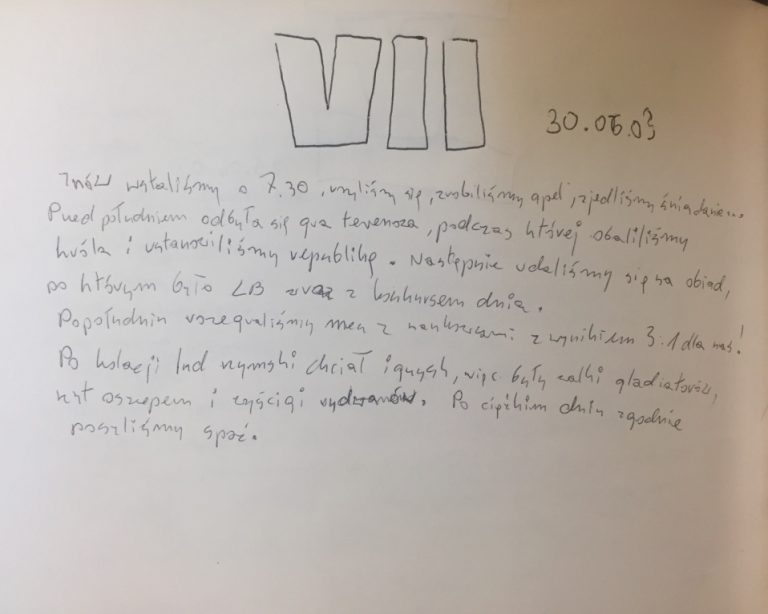 VII
30.06.03
Znów wstaliśmy o 7.30, umyliśmy się, zrobiliśmy apel, zjedliśmy śniadanie...
Przed południem odbyła się gra terenowa, podczas której obaliliśmy
króla i ustanowiliśmy republikę. Następnie udaliśmy się na obiad,
po którym było LB wraz z konkursem dnia.
Popołudniu rozegraliśmy mecz z z wynikiem 3:1 dla nas!
Po kolacji lud rzymski chciał igrzysk, więc były walki gladiatorów,
rzut oszczepem i wyścigi rydwanów. Po ciężkim dniu zgodnie
poszliśmy spać.